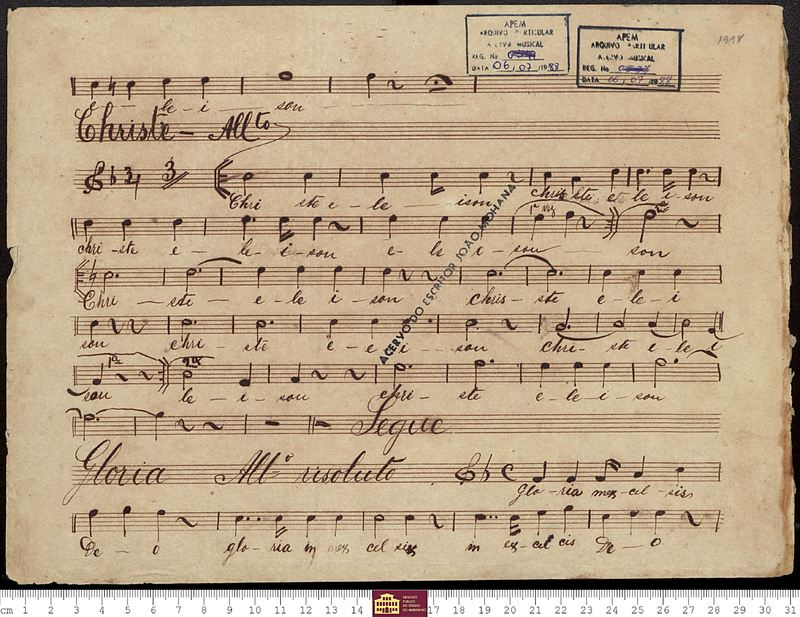 APEM
ARQUIVO PARTICULAR
ACERVO MUSICAL
REG. No
DATA 06, 07 /1988
APEM
ARQUIVO PARTICULAR
ACERVO MUSICAL
REG. No
DATA 06, 07 1988
e - le - i - son
Christe - Allto
Chri ste e - le ison christe e le i - son
chri - ste e - le - i - son e - le i - son son
1ª vez 2ª
Chri - ste - e - le i - son chris - ste e - le - i
son chri - ste e - e i - son chri - ste e - le i
1ª 2ª
son le - i - son chri - ste e - le - i - son
Segue
Gloria Allº risoluto
Glo - ria in ex - cel - sis
De - o glo - ria in ex cel sis in ex - cel cis De - o
ACERVO DO ESCRITOR JOÃO MOHANA
cm 1 2 3 4 5 6 7 8 9 10 11 12 13 14 17 18 19 20 21 22 23 24 25 26 27 28 29 30 31
ARQUIVO
PÚBLICO
DO ESTADO
DO MARANHÃO